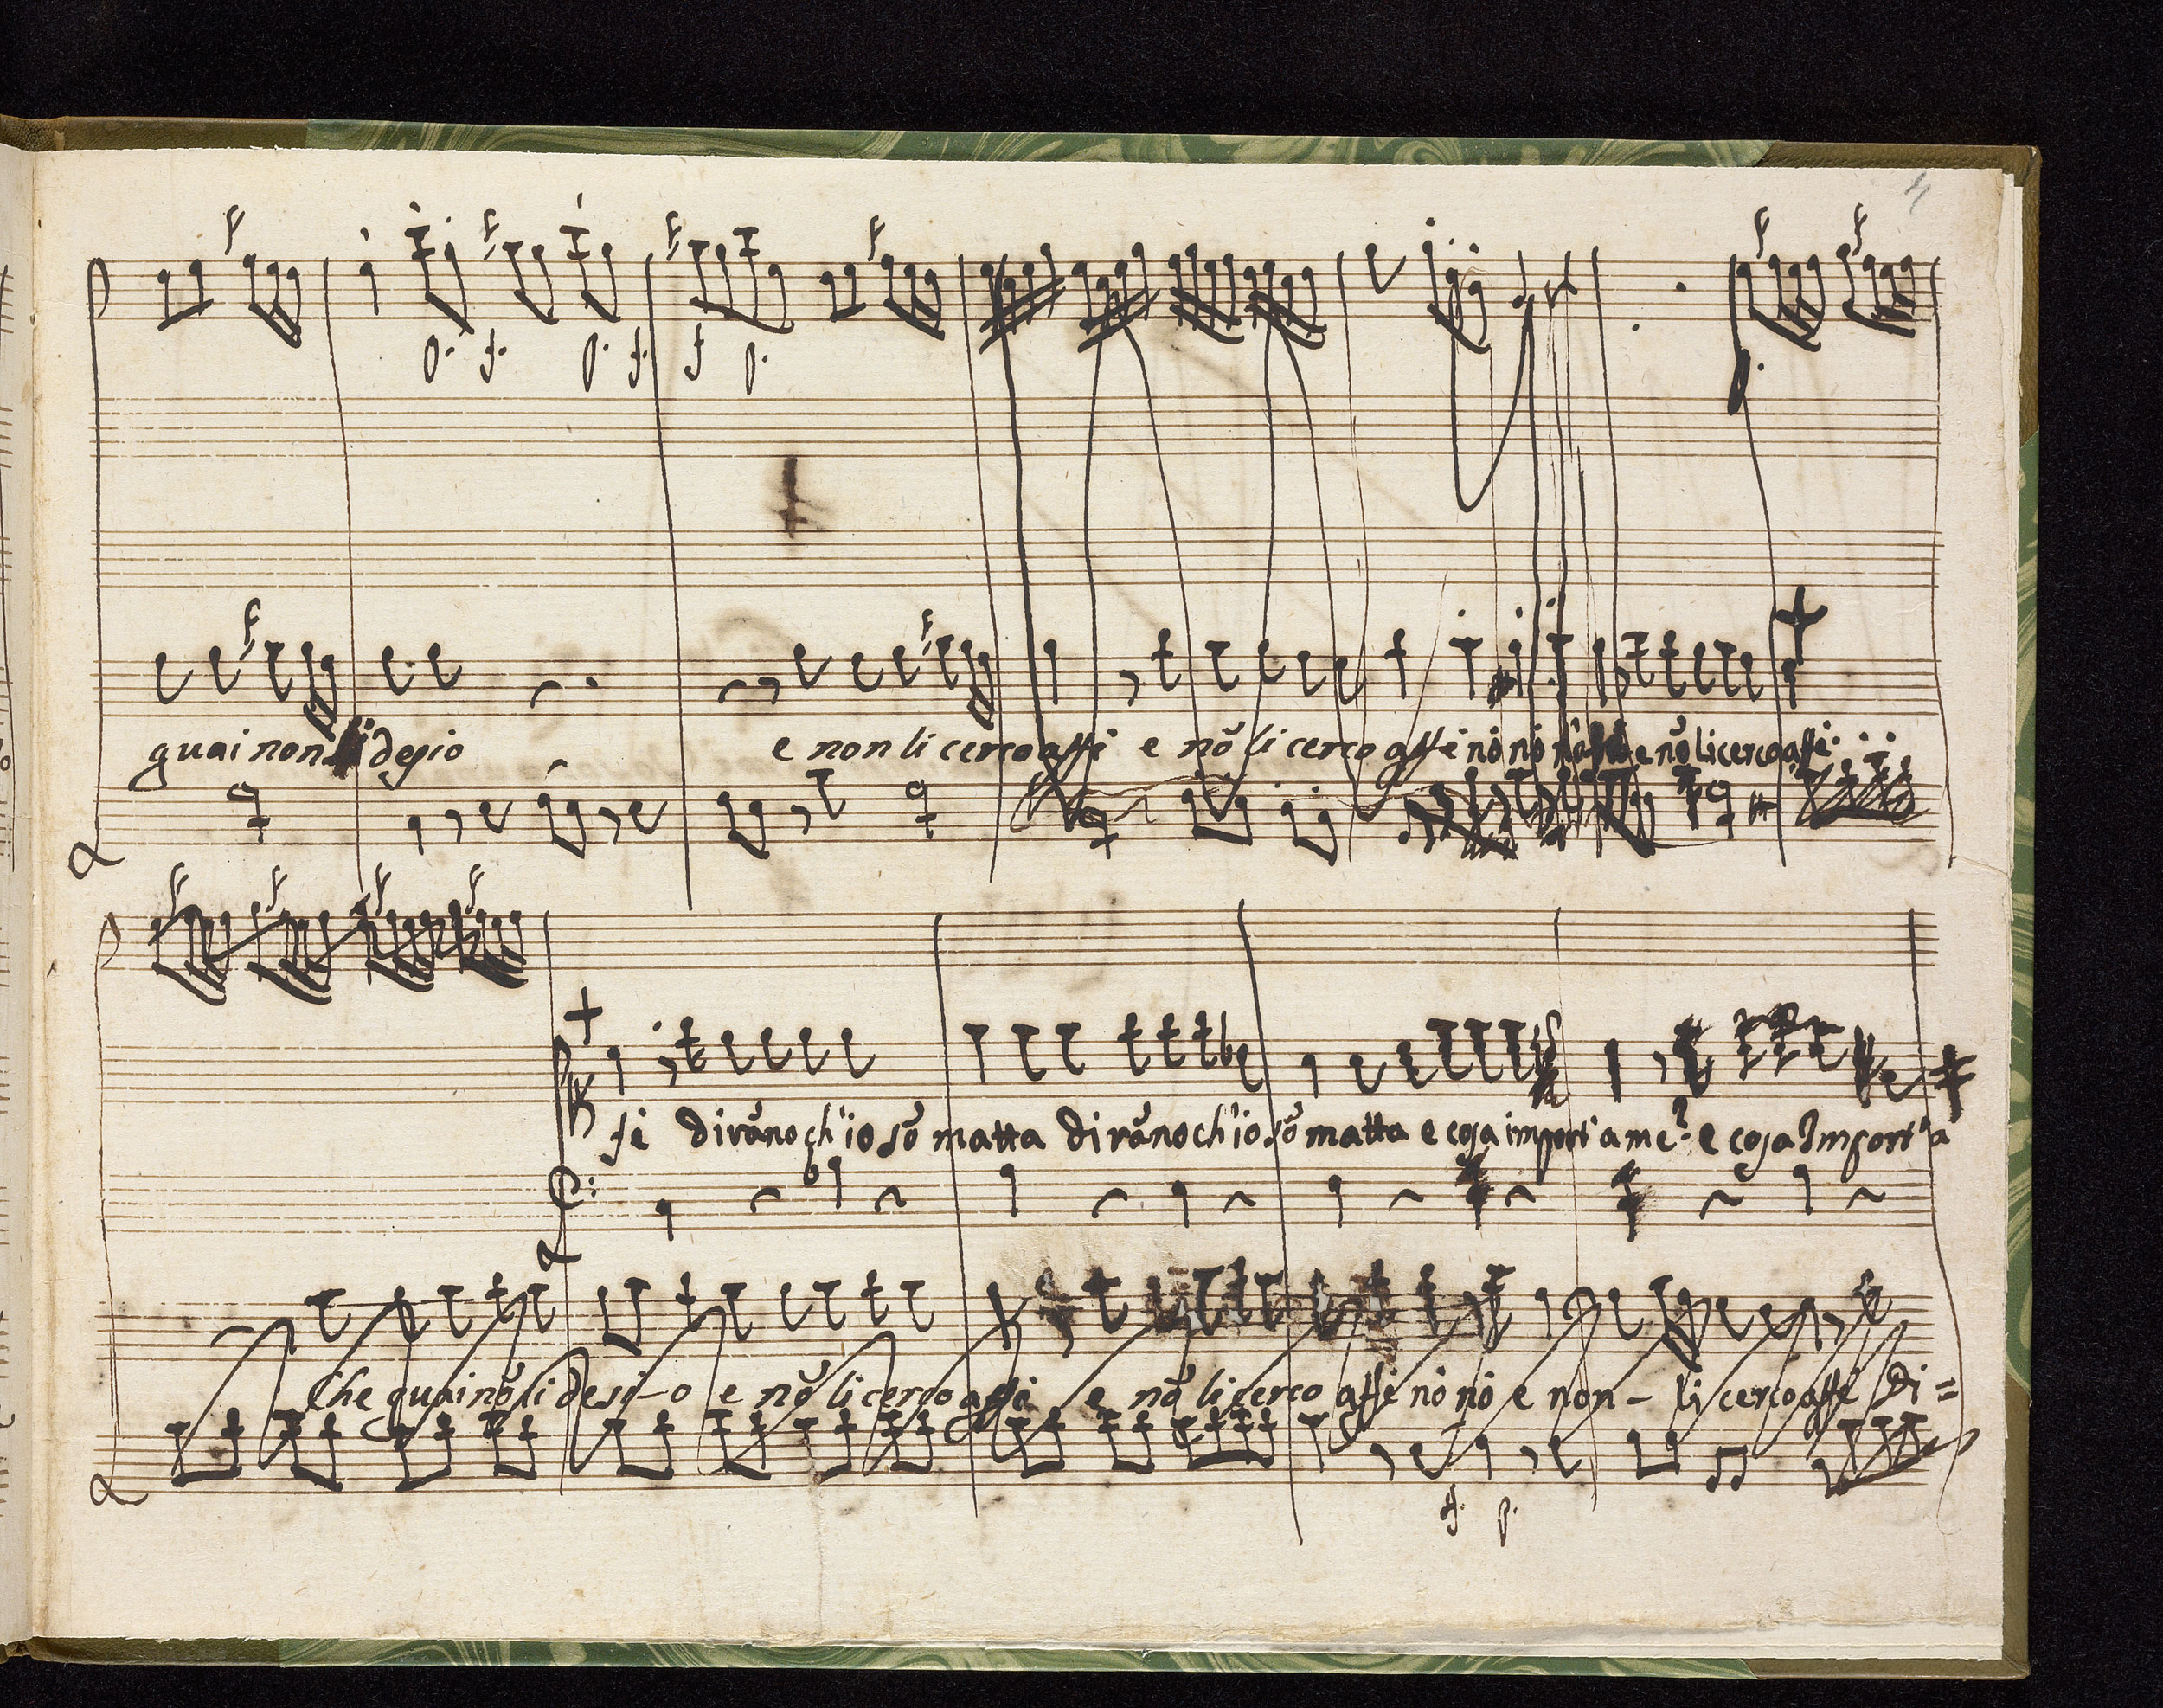 p. f. p. f. f p. p.
guai non li desio e non li cerco affè e nõ li cerco affè nò nò e nõ li cerco affè
fè dirãno ch'io sõ matta dirãno ch'io sõ matta e cosa import'a me? e cosa Import'a
Che guai nõ li desi-o e nõ li cerco affè e nõ li cerco affè nò nò e non - li cerco affè Di=
f. p.